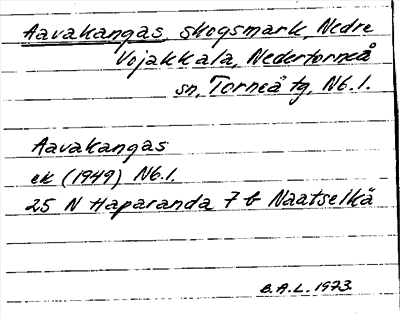 Aavakangas, skogsmark, Nedre
Vojakkala, Nedertorneå
sn, Torneå tg, Nb. l.
Aavakangas
ek (1949) Nb. l.
25 N Haparanda 7 b Naatselkä
B.A.L. 1973.